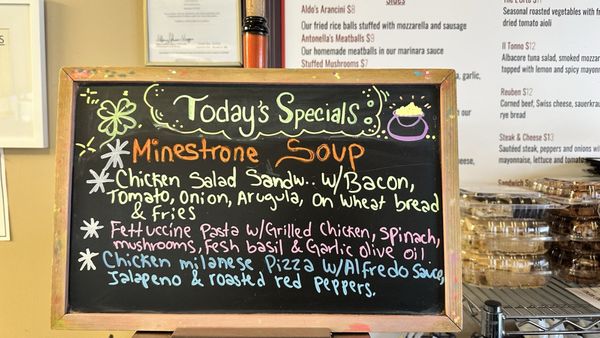 Today's Specials:
Minestrone Soup
Chicken Salad Sandw.. w/Bacon,
Tomato, Onion, Arugula, on wheat bread
& fries
Fettuccine Pasta w/Grilled Chicken, spinach,
mushrooms, Fesh basil & Garlic olive oil.
Chicken milanese Pizza w/Alfredo sauce,
Jalapeno & roasted red peppers.
Sides
Aldo's Arancini $8
Our fried rice balls stuffed with mozzarella and sausage
Antonella's Meatballs $9
Our homemade meatballs in our marinara sauce
Stuffed Mushrooms $7
garlic,
Seasonal roasted vegetables with
dried tomato aioli
Il Tonno $12
Albacore tuna salad, smoked
topped with lemon and spicy
Reuben $12
Corned beef, Swiss cheese,
rye bread
Steak & Cheese $13
Sautéed steak, peppers and onions
mayonnaise, lettuce and